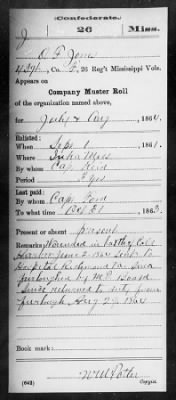 (Confederate.)
J 26 Miss.
Jones
Co. F, 26 Reg't Mississippi Vols.
Appears on
Company Muster Roll
of the organization named above,
for July & Aug, 1864.
Enlisted:
When Sept 1, 1861.
Where Iuka Miss
By whom Capt Reid
Period 3 Yrs
Last paid:
By whom Capt Ford
To what time Oct 31, 1863.
Present or absent present
Remarks: Wounded in battle of Cold
Harbor June 2 1864 sent to
Hospital Richmond Va and
furloughed by M.E. Board
since returned to duty from
furlough Aug 29 1864
Book mark:
(642) Copyist.